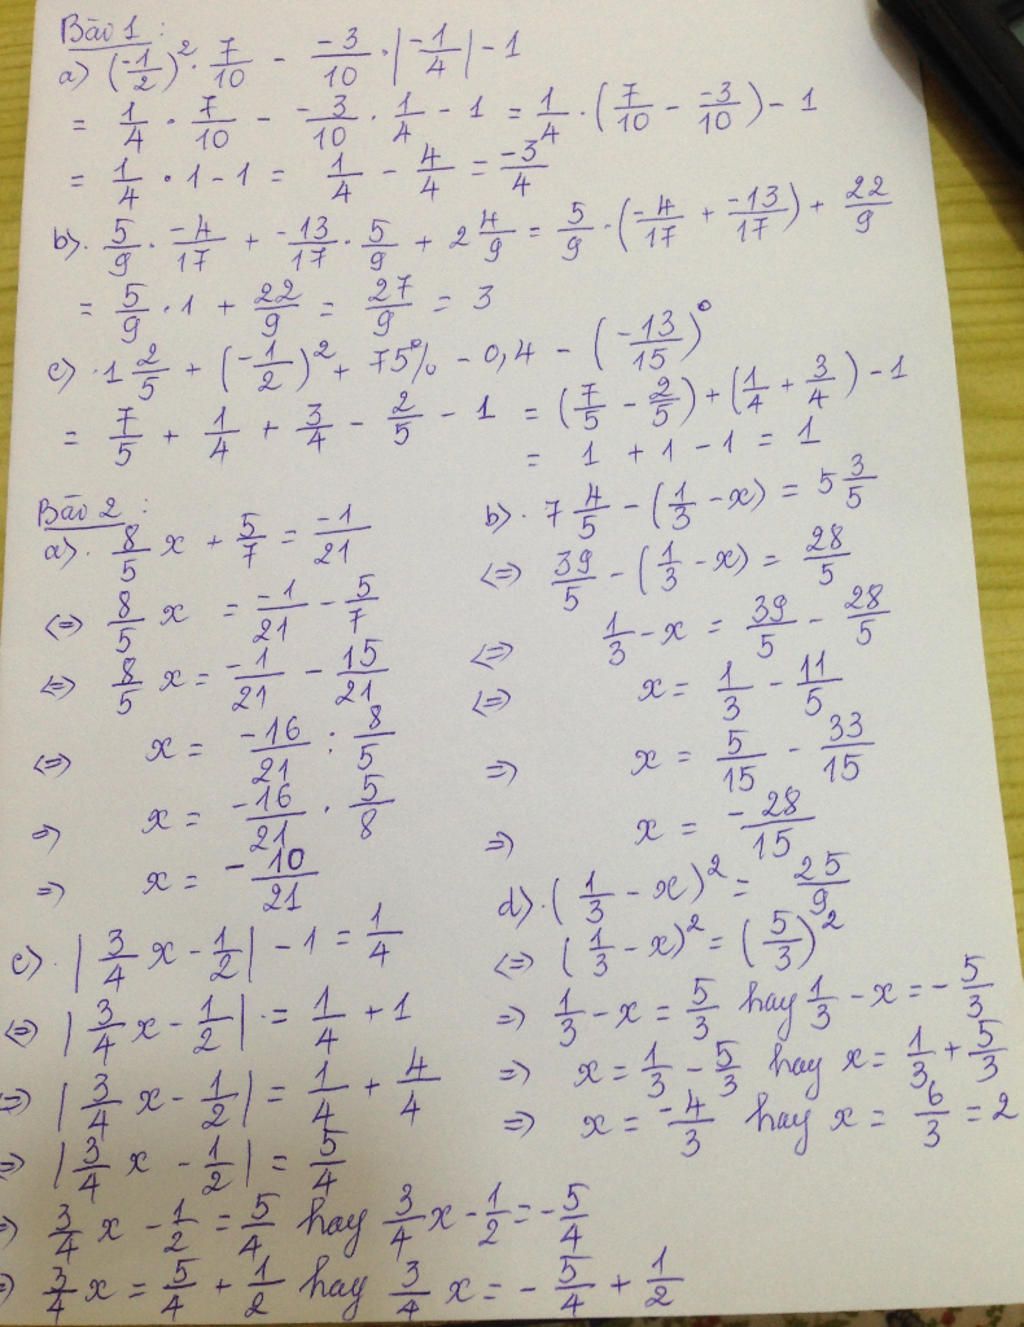 Bài 1 :
a) (-1/2)² . 7/10 - -3/10 . |-1/4| - 1
= 1/4 . 7/10 - -3/10 . 1/4 - 1 = 1/4 . (7/10 - -3/10) - 1
= 1/4 . 1 - 1 = 1/4 - 4/4 = -3/4
b). 5/9 . -4/17 + -13/17 . 5/9 + 2 4/9 = 5/9 . (-4/17 + -13/17) + 22/9
= 5/9 . 1 + 22/9 = 27/9 = 3
c) . 1 2/5 + (-1/2)² + 75% - 0,4 - (-13/15)⁰
= 7/5 + 1/4 + 3/4 - 2/5 - 1 = (7/5 - 2/5) + (1/4 + 3/4) - 1
= 1 + 1 - 1 = 1
Bài 2 :
a). 8/5 x + 5/7 = -1/21
<=> 8/5 x = -1/21 - 5/7
<=> 8/5 x = -1/21 - 15/21
<=> x = -16/21 : 8/5
=> x = -16/21 . 5/8
=> x = -10/21
b). 7 4/5 - (1/3 - x) = 5 3/5
<=> 39/5 - (1/3 - x) = 28/5
<=> 1/3 - x = 39/5 - 28/5
<=> x = 1/3 - 11/5
=> x = 5/15 - 33/15
=> x = -28/15
c). |3/4 x - 1/2| - 1 = 1/4
<=> |3/4 x - 1/2| = 1/4 + 1
=> |3/4 x - 1/2| = 1/4 + 4/4
=> |3/4 x - 1/2| = 5/4
=> 3/4 x - 1/2 = 5/4 hay 3/4 x - 1/2 = -5/4
=> 3/4 x = 5/4 + 1/2 hay 3/4 x = -5/4 + 1/2
d). (1/3 - x)² = 25/9
<=> (1/3 - x)² = (5/3)²
=> 1/3 - x = 5/3 hay 1/3 - x = -5/3
=> x = 1/3 - 5/3 hay x = 1/3 + 5/3
=> x = -4/3 hay x = 6/3 = 2